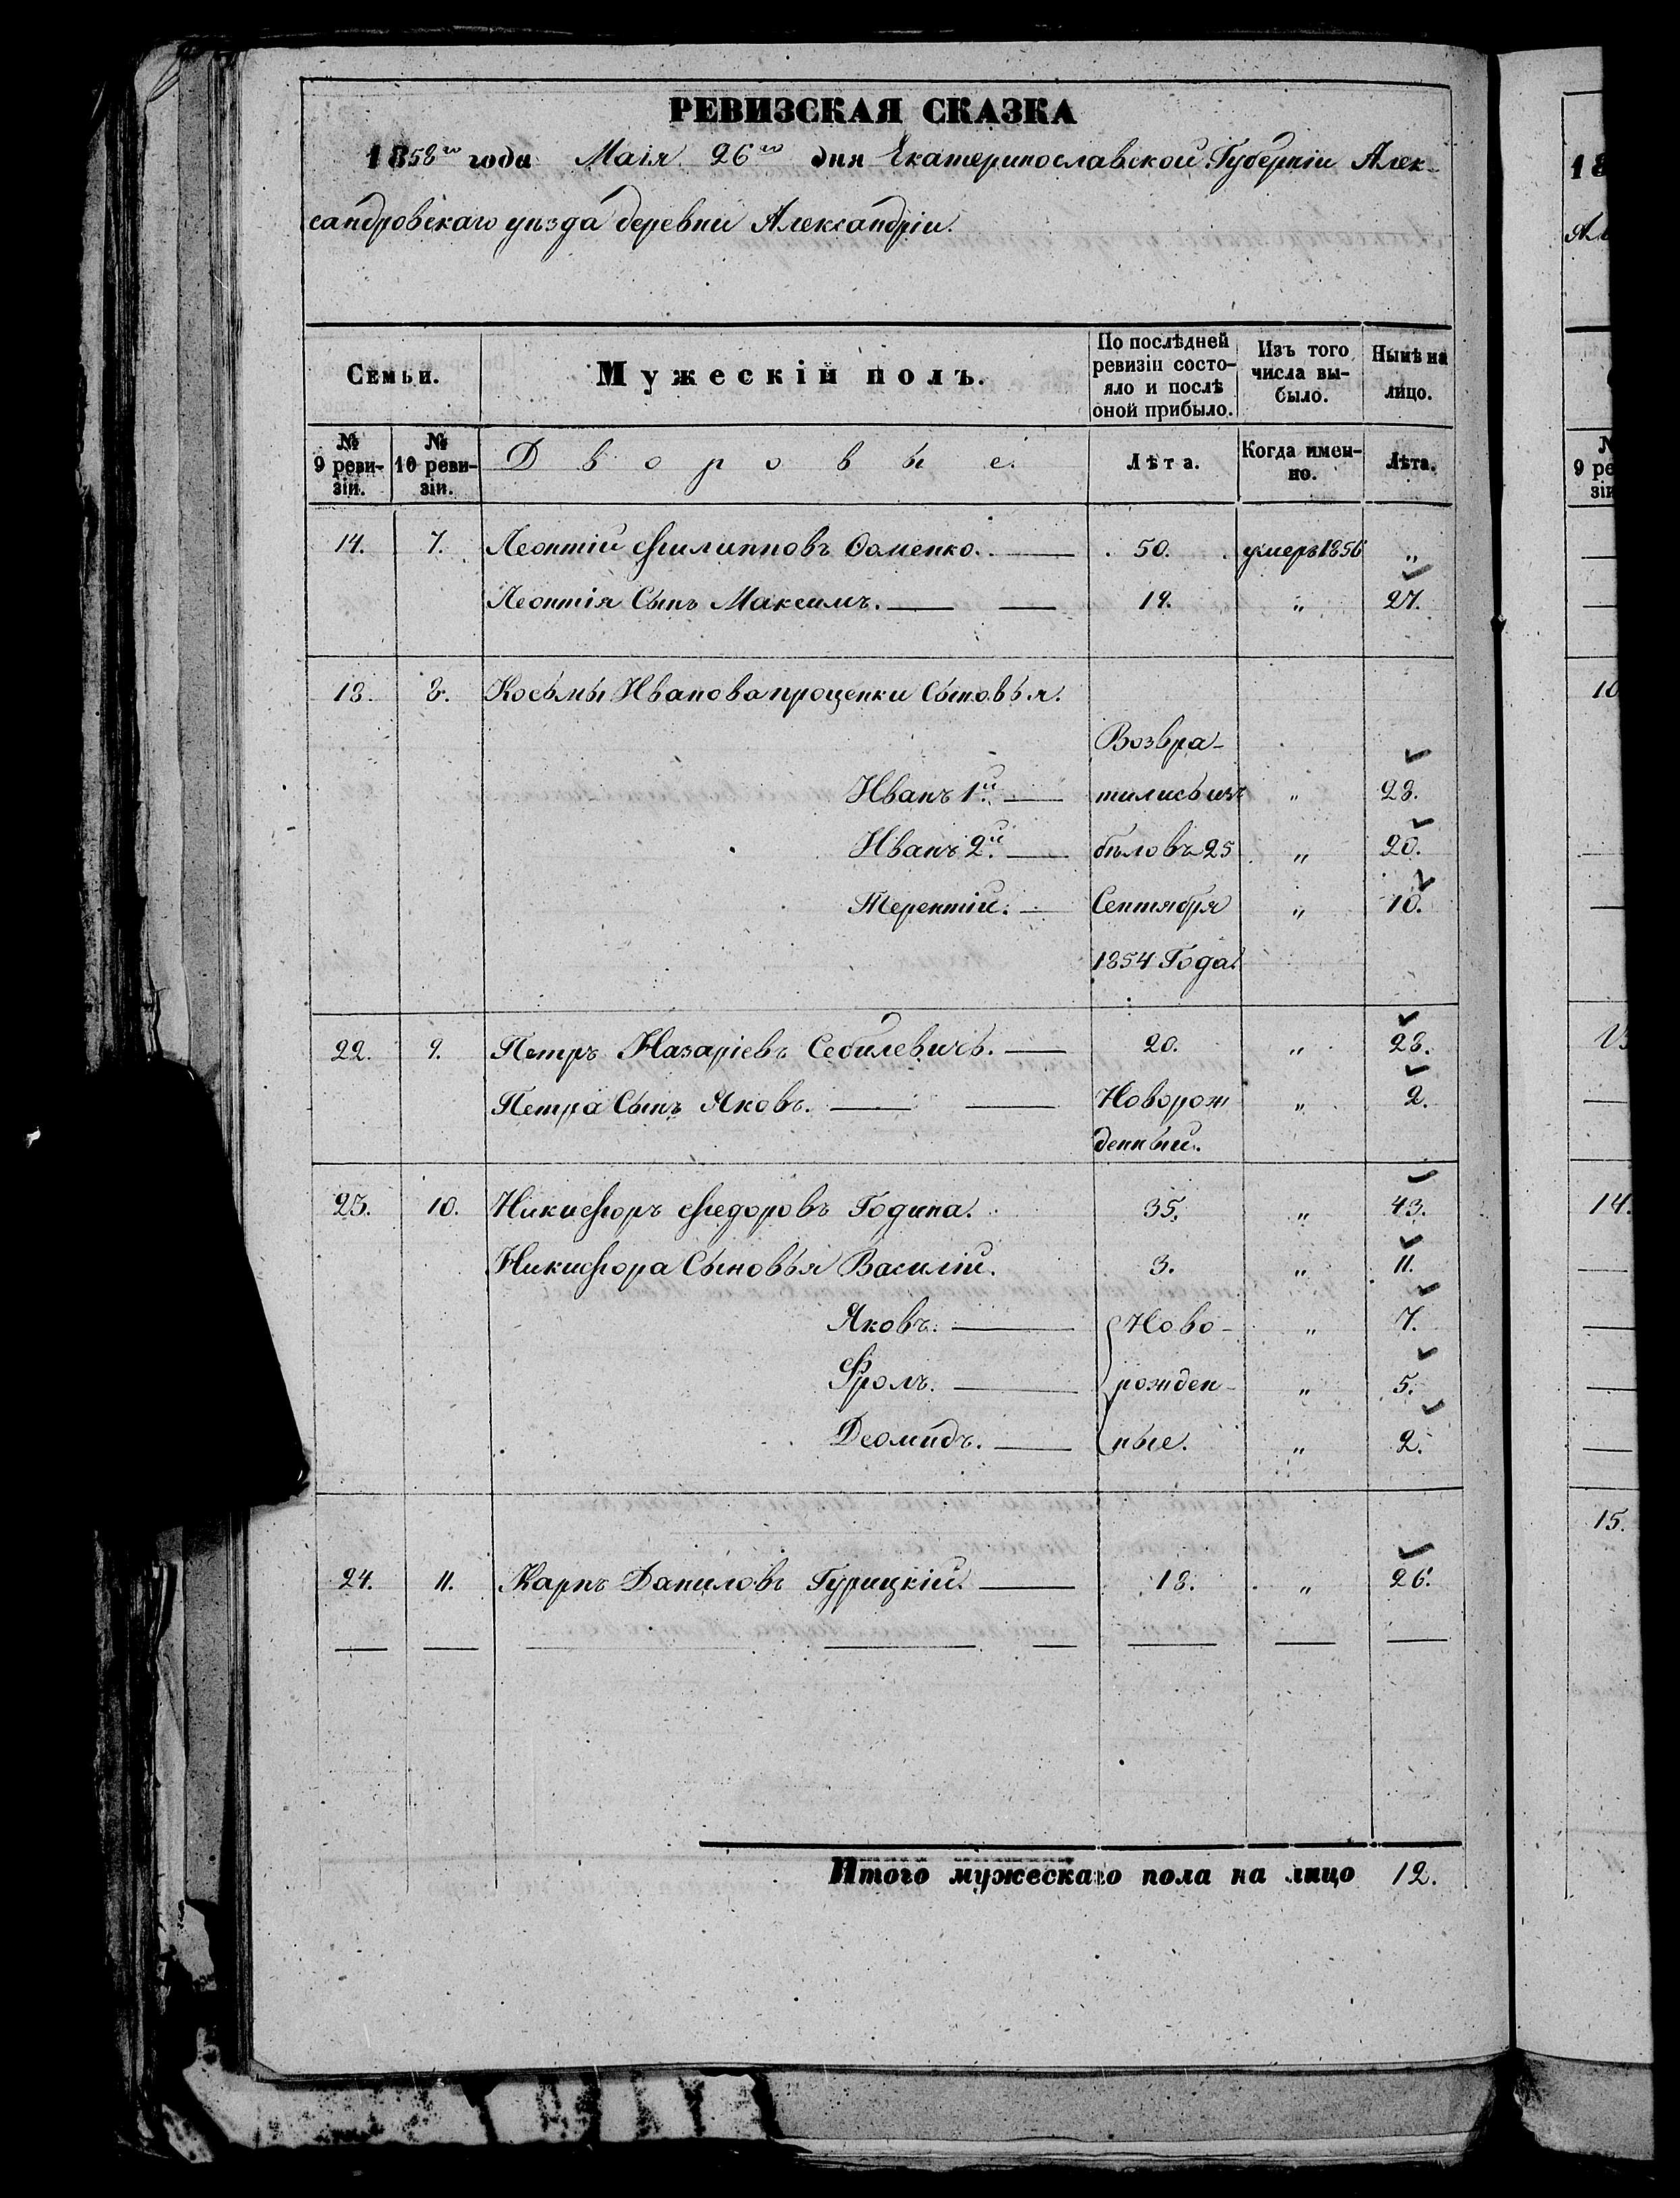 РЕВИЗСКАЯ СКАЗКА
1858го года Маія 26го дня Екатеринославской Губерніи Алек-
сандровскаго уѣзда деревни Александріи.
Семьи.
Мужескій полъ.
По послѣдней ревизіи состо-яло и послѣ оной прибыло.
Изъ того числа вы-было.
Нынѣ на лицо.
№ 9 реви-зіи.
№ 10 реви-зіи.
Дворовые.
Лѣта.
Когда имен-но.
Лѣта.
14. 7. Леонтій Филипповъ Фоменко. 50. умеръ 1856 "
Леонтія Сынъ Максимъ. 19. " 27.
18. 8. Косьмы Иванова проценки Сыновья.
Возвра-
Иванъ 1й тились изъ " 28.
Иванъ 2й бѣговъ 25 " 20.
Терентій. Сентября " 10.
1854 Года.
22. 9. Петръ Назаріевъ Себилевичь. 20. " 28.
Петра Сынъ Яковъ. Новорож " 2.
денный.
23. 10. Никифоръ Федоровъ Година. 35. " 43.
Никифора Сыновья Василій. 3. " 11.
Яковъ. Ново- " 7.
Фролъ. рожден- " 5.
Деомидъ. ные. " 2.
24. 11. Карпъ Даниловъ Гурицкій. 18. " 26.
Итого мужескаго пола на лицо 12.
18
Ал
№
9 ре
зіи
14.
15.